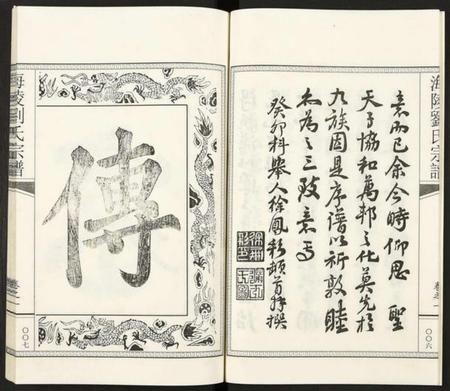 海陵劉氏宗譜
卷之一
〇〇六
意而已余今時仰思 聖
天子協和萬邦之化莫先於
九族因是序譜以祈敦睦
而為之三致意焉
癸卯科舉人徐鳳彩頓首拜撰
傳
海陵劉氏宗譜
卷之一
〇〇七